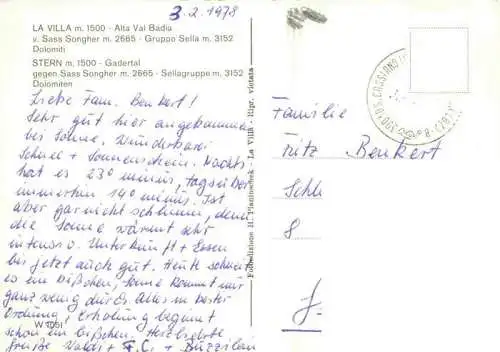 3.2.1978
LA VILLA m. 1500 - Alta Val Badia
v. Sass Songher m. 2665 - Gruppo Sella m. 3152
Dolomiti
STERN m. 1500 - Gadertal
gegen Sass Songher m. 2665 - Sellagruppe m. 3152
Dolomiten
Liebe Fam. Benkert!
Sehr gut hier angekommen
bei Sonne. Wunderbarer
Schnee + Sonnenschein. Nachts
hat es 23° minus, tagsüber
immerhin 14° minus. Ist
aber gar nicht schlimm, denn
die Sonne wärmt sehr
intensiv. Unterkunft + Essen
bis jetzt auch gut. Heute schneit
es ein bißchen, Sonne kommt nur
ganz wenig durch. Alles in bester
Ordnung, Erholung beginnt
schon ein bißchen. Herzlichste
Grüße
W 1051
Fotoedizione H. Planinschek - La Villa - Ripr. vietata
Familie
Fritz Benkert
Schl
8